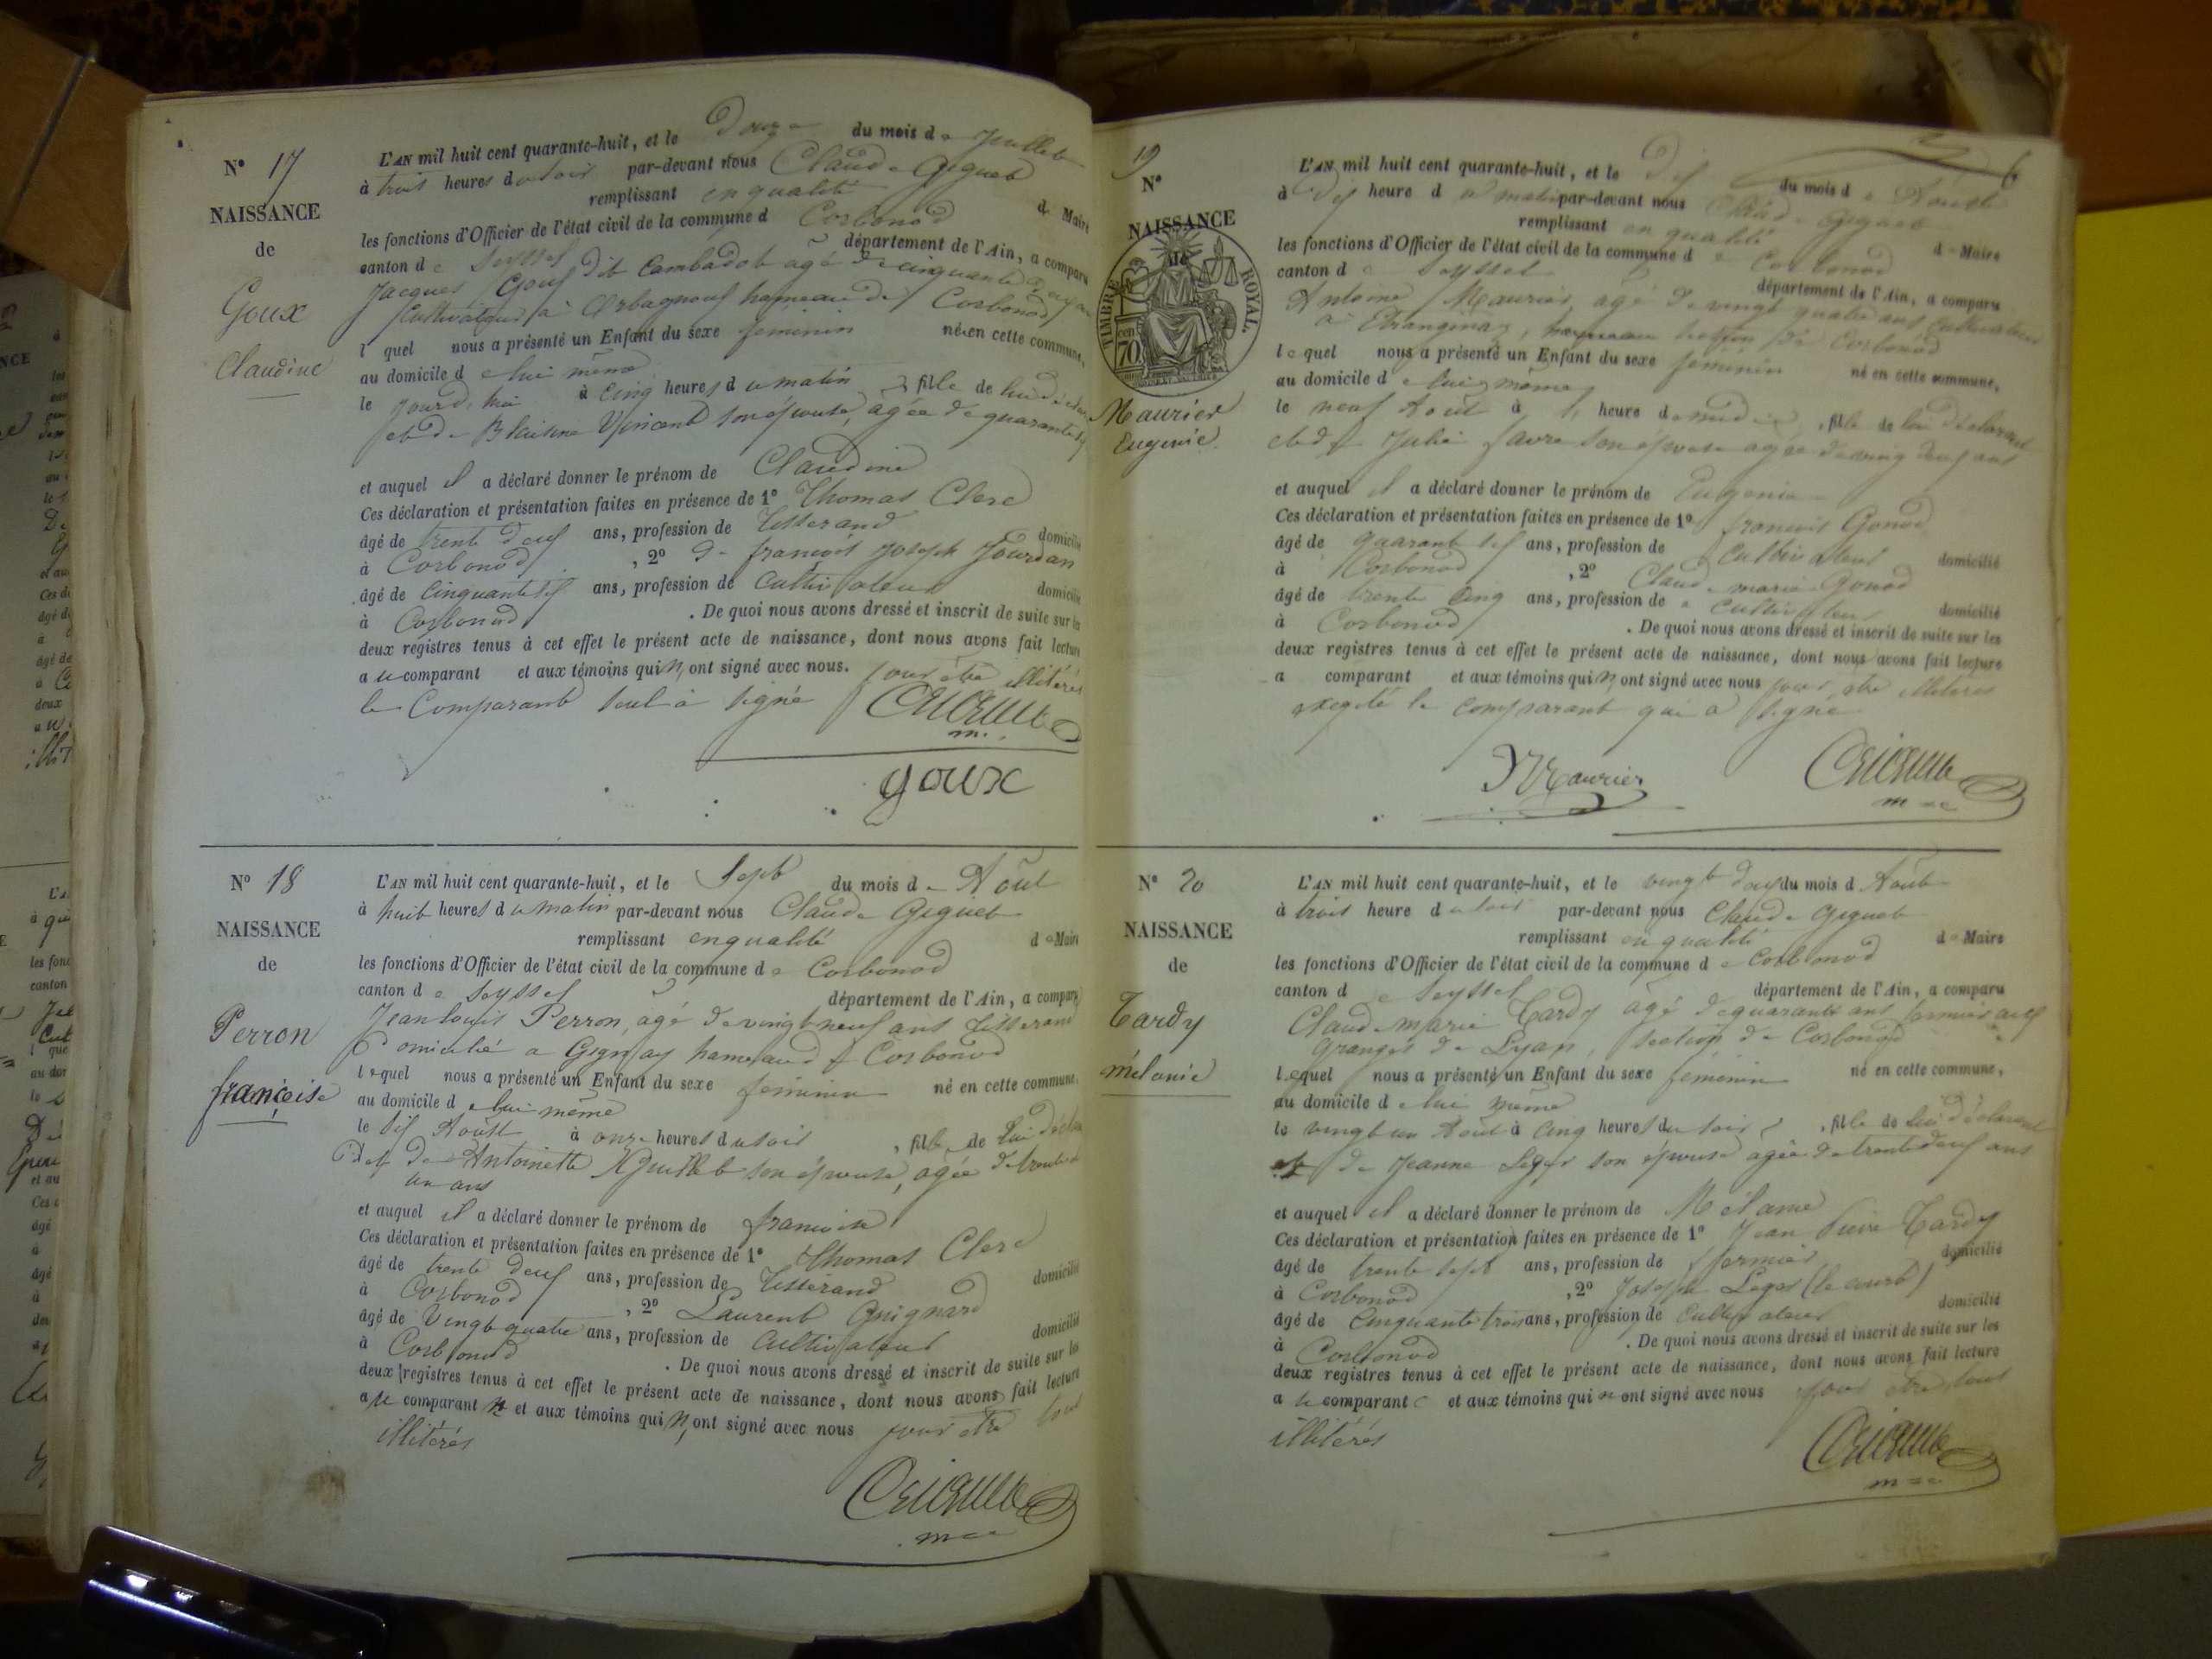 N° 17
NAISSANCE
de
Goux
Claudine
L'AN mil huit cent quarante-huit, et le Douze du mois de Juillet
à trois heures du soir par-devant nous Claude Giguet
remplissant en qualité de Maire
les fonctions d'Officier de l'état civil de la commune d Corbonod
canton de Seyssel département de l'Ain, a comparu
Jacques Goux dit Cambadot agé de cinquante
Cultivateur à Orbagnoux hameau de Corbonod
lequel nous a présenté un Enfant du sexe feminin né en cette commune,
au domicile de lui même
le jourd'hui à Cinq heures du matin fille de lui
et de Blaisine Vincent son épouse, agée de quarante
et auquel il a déclaré donner le prénom de Claudine
Ces déclaration et présentation faites en présence de 1° Thomas Clerc
âgé de trente deux ans, profession de tisserand domicilié
à Corbonod, 2° de françois joseph Jourdan
âgé de Cinquante six ans, profession de Cultivateur domicilié
à Corbonod. De quoi nous avons dressé et inscrit de suite sur les
deux registres tenus à cet effet le présent acte de naissance, dont nous avons fait lecture
au comparant et aux témoins qui n'ont signé avec nous. pour être illitérés
le Comparant seul a signé
m.
goux
N° 18
NAISSANCE
de
Perron
françoise
L'AN mil huit cent quarante-huit, et le Sept du mois de Août
à huit heures du matin par-devant nous Claude Giguet
remplissant en qualité de Maire
les fonctions d'Officier de l'état civil de la commune de Corbonod
canton de Seyssel département de l'Ain, a comparu
Jean louis Perron, agé de vingt neuf ans tisserand
Domicilié a Gignay hameau de Corbonod
lequel nous a présenté un Enfant du sexe feminin né en cette commune,
au domicile de lui même
le six Août à onze heures du soir, fille de lui
et de Antoinette son épouse, agée de trente
un ans
et auquel il a déclaré donner le prénom de francoise
Ces déclaration et présentation faites en présence de 1° Thomas Clerc
âgé de trente deux ans, profession de tisserand domicilié
à Corbonod, 2° Laurent Guignard
âgé de Vingt quatre ans, profession de Cultivateur domicilié
à Corbonod. De quoi nous avons dressé et inscrit de suite sur les
deux registres tenus à cet effet le présent acte de naissance, dont nous avons fait lecture
au comparant et aux témoins qui n'ont signé avec nous pour être tous
illitérés
19
N°
NAISSANCE
TIMBRE ROYAL
70
Maurier
Eugenie
6
L'AN mil huit cent quarante-huit, et le Dix du mois de Août
à Dix heure du matin par-devant nous Claude Giguet
remplissant en qualité de Maire
les fonctions d'Officier de l'état civil de la commune de Corbonod
canton de Seyssel département de l'Ain, a comparu
Antoine Maurier, agé de vingt quatre ans Cultivateur
à Etranginaz, section de Corbonod
lequel nous a présenté un Enfant du sexe féminin né en cette commune,
au domicile de lui même
le neuf Août à heure de midi, fille de lui déclarant
et de Julie favre son épouse agée de vingt deux ans
et auquel il a déclaré donner le prénom de Eugenie
Ces déclaration et présentation faites en présence de 1° francois Gonod
âgé de quarante six ans, profession de Cultivateur domicilié
à Corbonod, 2° Claude marie Gonod
âgé de trente cinq ans, profession de cultivateur domicilié
à Corbonod. De quoi nous avons dressé et inscrit de suite sur les
deux registres tenus à cet effet le présent acte de naissance, dont nous avons fait lecture
a comparant et aux témoins qui n'ont signé avec nous pour être illiteres
le comparant qui a signé
Maurier
N° 20
NAISSANCE
de
Tardy
mélanie
L'AN mil huit cent quarante-huit, et le vingt deux du mois d Août
à trois heure du soir par-devant nous Claude Giguet
remplissant en qualité de Maire
les fonctions d'Officier de l'état civil de la commune de Corbonod
canton de Seyssel département de l'Ain, a comparu
Claude marie Tardy agé de quarante ans fermier aux
Granges de Lyan, section de Corbonod
lequel nous a présenté un Enfant du sexe féminin né en cette commune,
au domicile de lui même
le vingt un Août à Cinq heures du soir, fille de lui déclarant
et de Jeanne Leger son épouse agée de trente deux ans
et auquel il a déclaré donner le prénom de Mélanie
Ces déclaration et présentation faites en présence de 1° Jean Pierre Tardy
âgé de trente sept ans, profession de fermier domicilié
à Corbonod, 2° Joseph Leger (le court)
âgé de Cinquante trois ans, profession de Cultivateur domicilié
à Corbonod. De quoi nous avons dressé et inscrit de suite sur les
deux registres tenus à cet effet le présent acte de naissance, dont nous avons fait lecture
au comparant et aux témoins qui n'ont signé avec nous pour être tous
illitérés